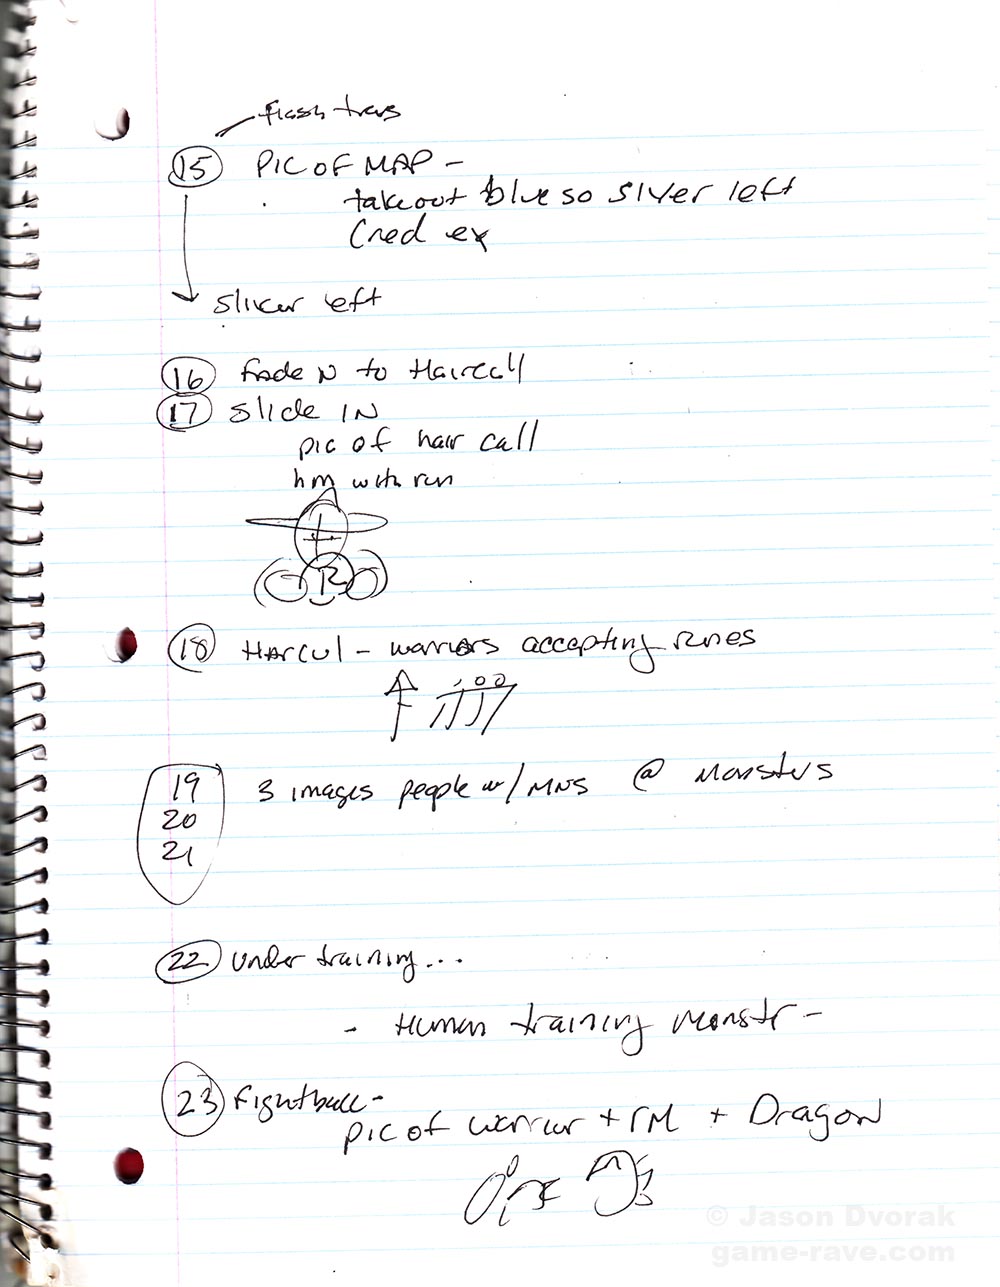 flash trans
15 PIC OF MAP -
takeout blue so silver left
(red ex
sliver left
16 fade N to Haircall
17 slide IN
pic of hair call
hm with run
R
18 Harcul - warriors accepting runes
19 3 images people w/ MNS @ monsters
20
21
22 under training...
- Human training monstr -
23 Fightball -
pic of warrior + rM + Dragon
© Jason Dvorak
game-rave.com